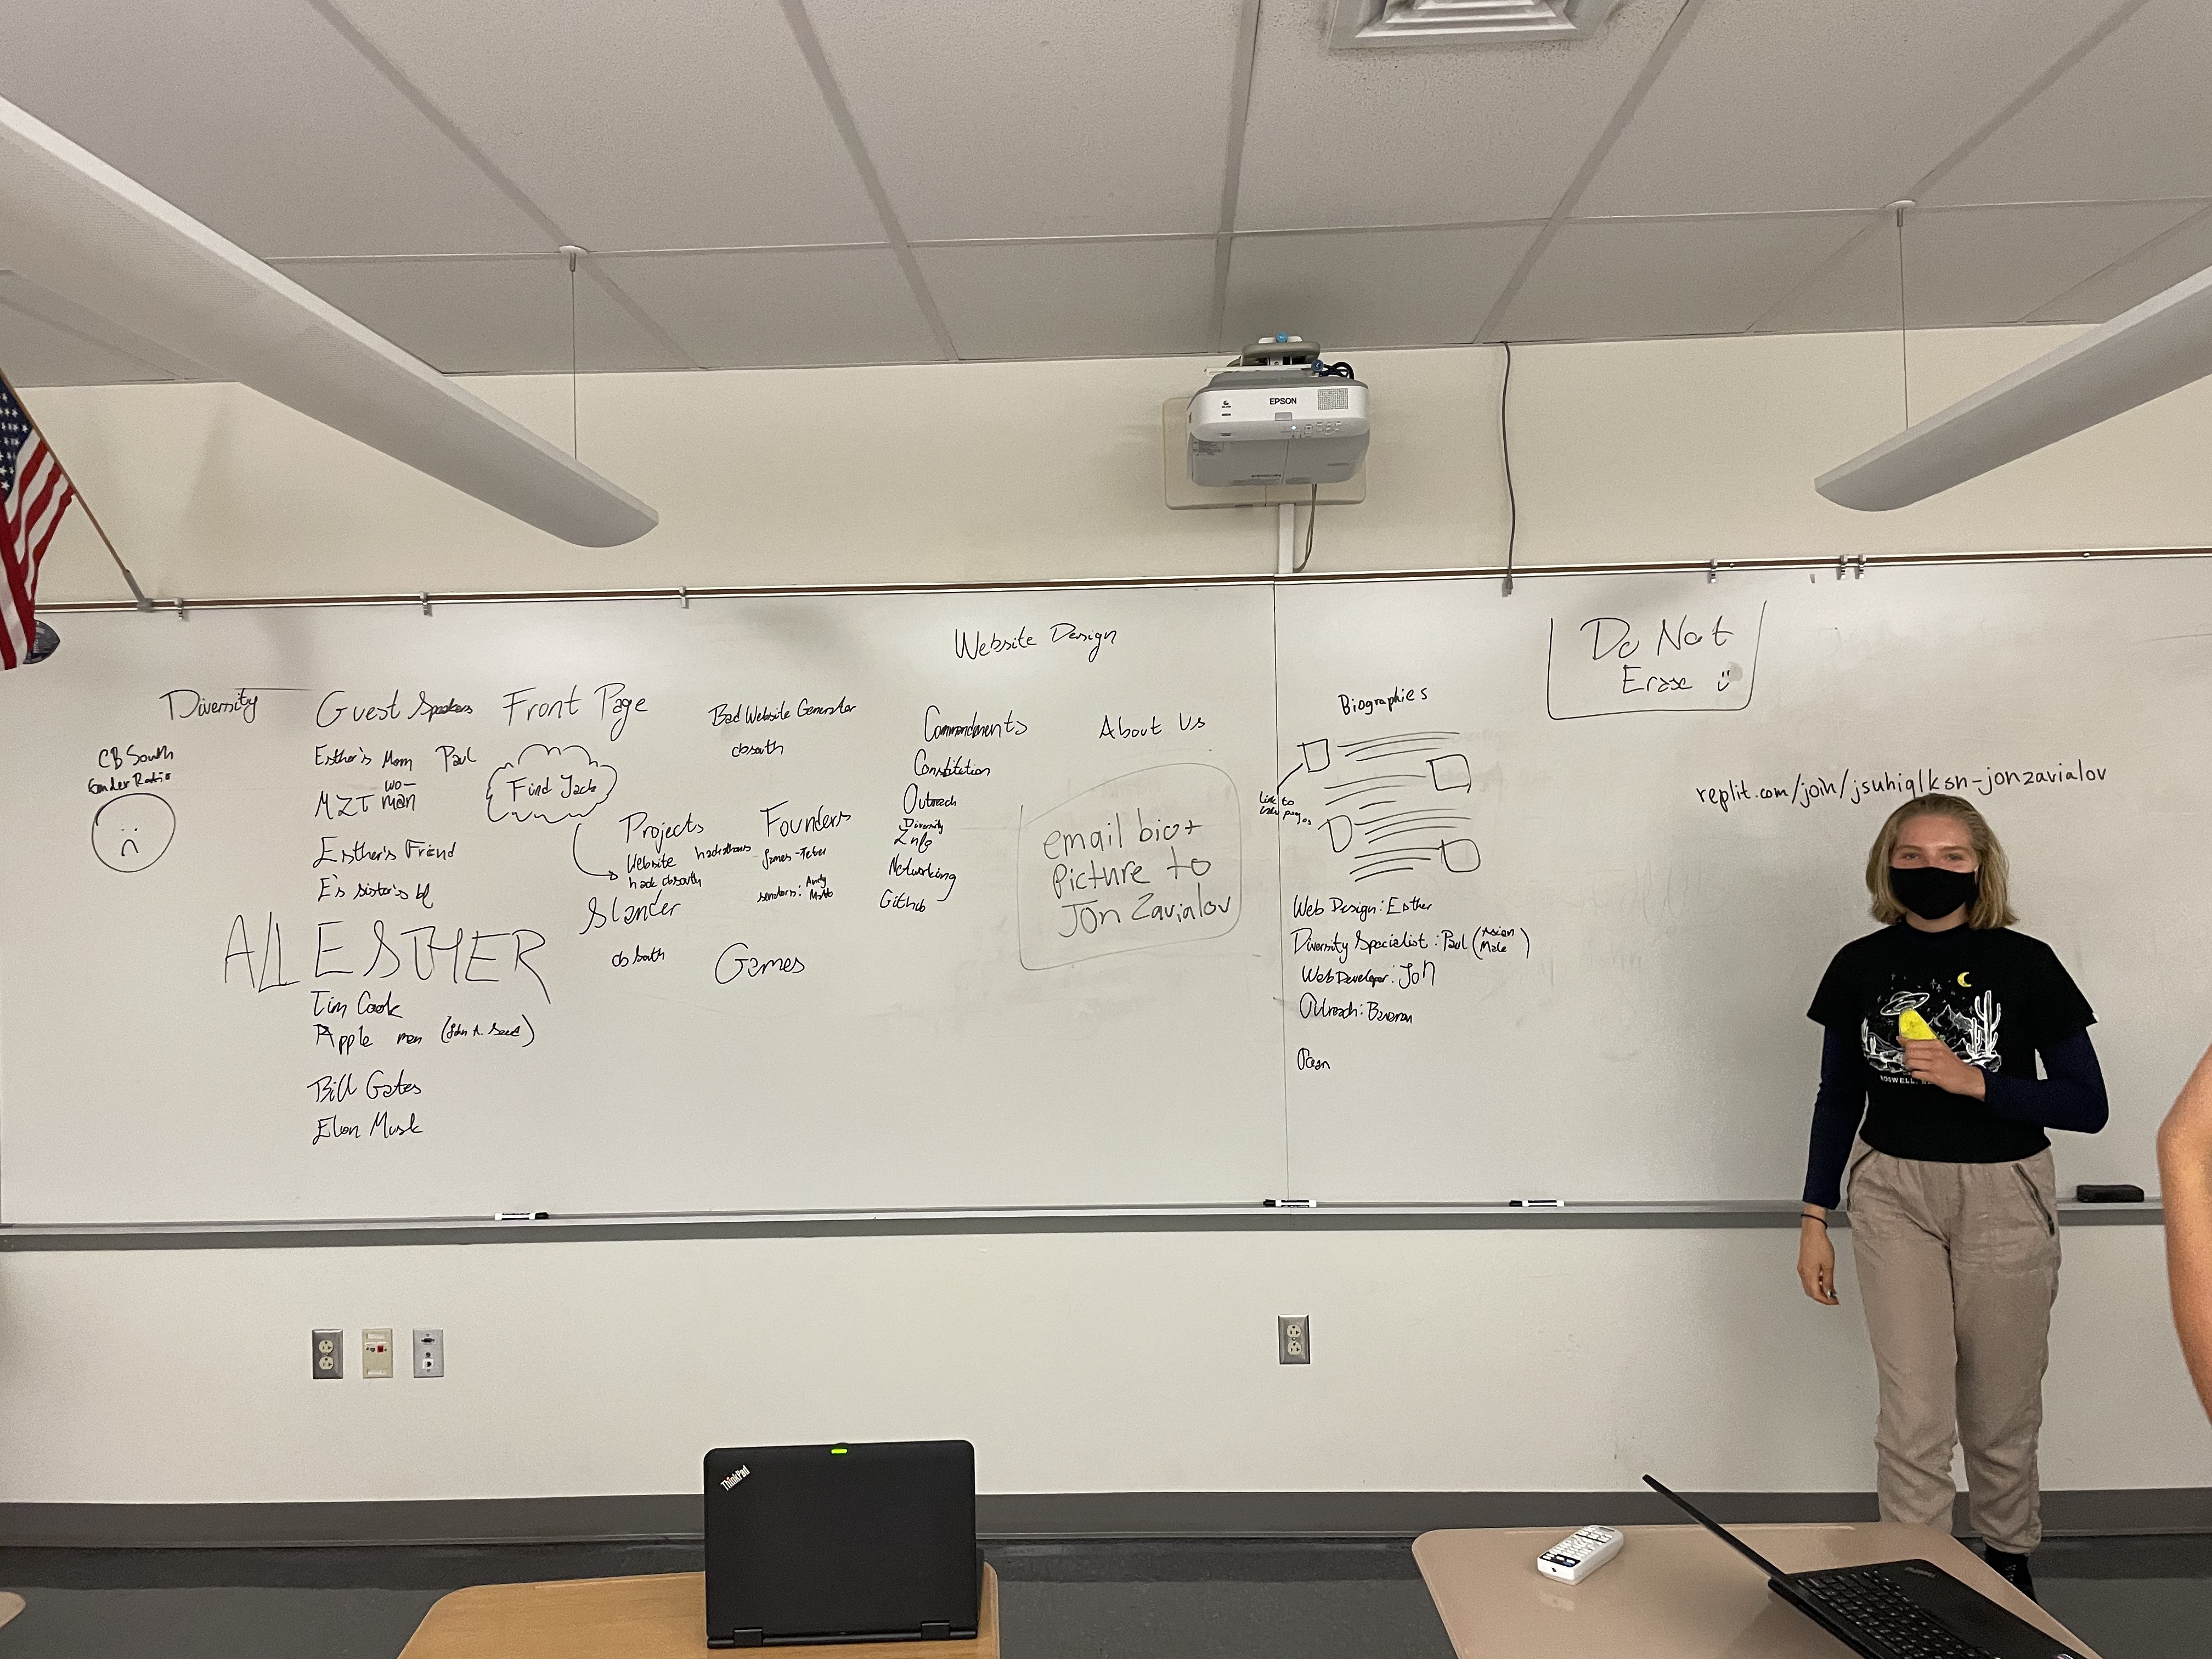 EPSON
Website Design
Do Not
Erase
Diversity
CB South
Gender Ratio
Guest Speakers
Esther's Mom Paul
MZT man
wo-
Esther's Friend
E's sister's bf
ALL ESTHER
Tim Cook
Apple man
Bill Gates
Elon Musk
Front Page
Find Jack
Projects
Website hackathons
hack cbsouth
Slander
cb south
Bad Website Generator
cbsouth
Founders
James-Teter
seniors: Andy
Matt
Games
Commandments
Constitution
Outreach
Diversity
Info
Networking
Github
About Us
email bio +
picture to
Jon Zavialov
Biographies
Link to
Web Design: Esther
Diversity Specialist: Paul (Asian
Male)
Web Developer: Jon
Outreach:
Ocean
replit.com/join/jsuhiqlksn-jonzavialov
ROSWELL,
ThinkPad